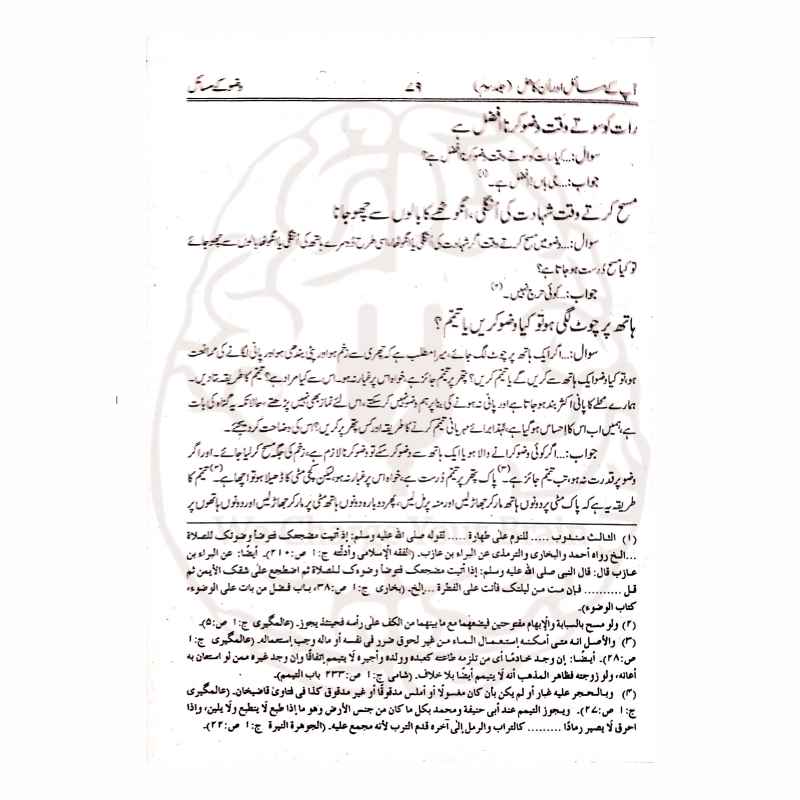 آپ کے مسائل اور اُن کا حل (جلد سوم) ۷۹ وضو کے مسائل
رات کو سوتے وقت وضو کرنا افضل ہے
سوال:...کیا رات کو سوتے وقت وضو کرنا افضل ہے؟
جواب:...جی ہاں! افضل ہے۔(۱)
مسح کرتے وقت شہادت کی اُنگلی، انگوٹھے کا بالوں سے چھو جانا
سوال:...وضو میں مسح کرتے وقت اگر شہادت کی اُنگلی یا انگوٹھا، اسی طرح دُوسرے ہاتھ کی اُنگلی یا انگوٹھا بالوں سے چھو جائے
تو کیا مسح دُرست ہو جاتا ہے؟
جواب:...کوئی حرج نہیں۔(۲)
ہاتھ پر چوٹ لگی ہو تو کیا وضو کریں یا تیمّم؟
سوال:...اگر ایک ہاتھ پر چوٹ لگ جائے، میرا مطلب ہے کہ چھری سے زخم ہو اور پٹی بندھی ہو اور پانی لگانے کی ممانعت
ہو، تو کیا وضو ایک ہاتھ سے کریں گے یا تیمّم کریں؟ پتھر پر تیمّم جائز ہے، خواہ اس پر غبار نہ ہو۔ اس سے کیا مراد ہے؟ تیمّم کا طریقہ بتادیں۔
ہمارے محلے کا پانی اکثر بند ہو جاتا ہے اور پانی نہ ہونے کی بنا پر ہم وضو نہیں کرسکتے، اس لئے نماز بھی نہیں پڑھتے، حالانکہ یہ گناہ کی بات
ہے، ہمیں اب اس کا اِحساس ہو گیا ہے، لہٰذا برائے مہربانی تیمّم کرنے کا طریقہ اور کس پتھر پر کریں؟ اس کی وضاحت کردیجئے۔
جواب:...اگر کوئی وضو کرانے والا ہو یا ایک ہاتھ سے وضو کرسکے تو وضو کرنا لازم ہے، زخم کی جگہ مسح کرلیا جائے۔ اور اگر
وضو پر قدرت نہ ہو، تب تیمّم جائز ہے۔(۳) پاک پتھر پر تیمّم دُرست ہے، خواہ اس پر غبار نہ ہو، لیکن کچی مٹی کا ڈھیلا ہو تو اچھا ہے۔(۴) تیمّم کا
طریقہ یہ ہے کہ پاک مٹی پر دونوں ہاتھ مار کر جھاڑ لیں اور منہ پر مل لیں، پھر دوبارہ دونوں ہاتھ مٹی پر مار کر جھاڑ لیں اور دونوں ہاتھوں پر
(۱) الثالث مندوب ..... للنوم علٰی طهارة ..... لقوله صلى الله عليه وسلم: إذ أتيت مضجعك فتوضأ وضوئك للصلاة
...الخ رواه أحمد والبخارى والترمذى عن البراء بن عازب۔ (الفقه الإسلامى وأدلّته ج:۱ ص:۲۱۰)۔ أيضًا: عن البراء بن
عازب قال: قال النبى صلى الله عليه وسلم: إذا أتيت مضجعك فتوضأ وضوءك للصلاة ثم اضطجع علٰى شقك الأيمن ثم
قل .......... فإن مت من ليلتك فأنت على الفطرة ...الخ۔ (بخارى ج:۱ ص:۳۸، باب فضل من بات على الوضوء،
كتاب الوضوء)۔
(۲) ولو مسح بالسبابة والإبهام مفتوحين فيضعهما مع ما بينهما من الكف على رأسه فحينئذ يجوز۔ (عالمگیری ج:۱ ص:۵)۔
(۳) والأصل انه متى أمكنه إستعمال الماء من غير لحوق ضرر فى نفسه أو ماله وجب إستعماله۔ (عالمگیری ج:۱
ص:۲۸)۔ أيضًا: إن وجد خادمًا أى من تلزمه طاعته كعبده وولده وأجيره لَا يتيمم إتفاقًا وإن وجد غيره ممن لو استعان به
أعانه، ولو زوجته فظاهر المذهب أنه لَا يتيمم أيضًا بلا خلاف۔ (شامى ج:۱ ص:۲۳۳ باب التيمم)۔
(۴) وبالحجر عليه غبار أو لم يكن بأن كان مغسولًا أو أملس مدقوقًا أو غير مدقوق كذا فى فتاوىٰ قاضيخان۔ (عالمگیری
ج:۱ ص:۲۷)۔ ويجوز التيمم عند أبى حنيفة ومحمد بكل ما كان من جنس الأرض وهو ما إذا طبع لَا ينطبع ولَا يلين، وإذا
احرق لَا يصير رمادًا ......... كالتراب والرمل إلٰى آخره قدم الترب لأنه مجمع عليه۔ (الجوهرة النيرة ج:۱ ص:۲۲)۔